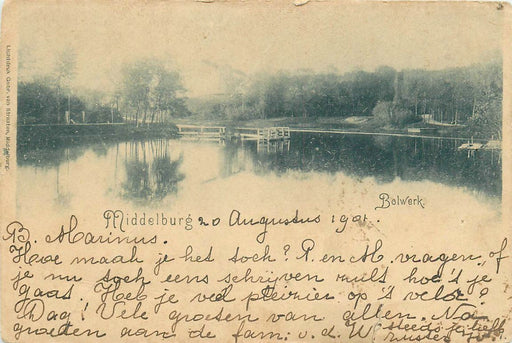 Lichtdruk Gebr. van Straaten, Middelburg.
Bolwerk.
Middelburg 20 Augustus 1901.
B. Marinus.
Hoe maak je het toch? P. en M. vragen, of
je nu toch eens schrijven zult hoe 't je
gaat. Heb je veel pleizier op 't veld?
Dag! Vele groeten van allen. Na
groeten aan de fam. v. d. W steeds je liefh.
zuster